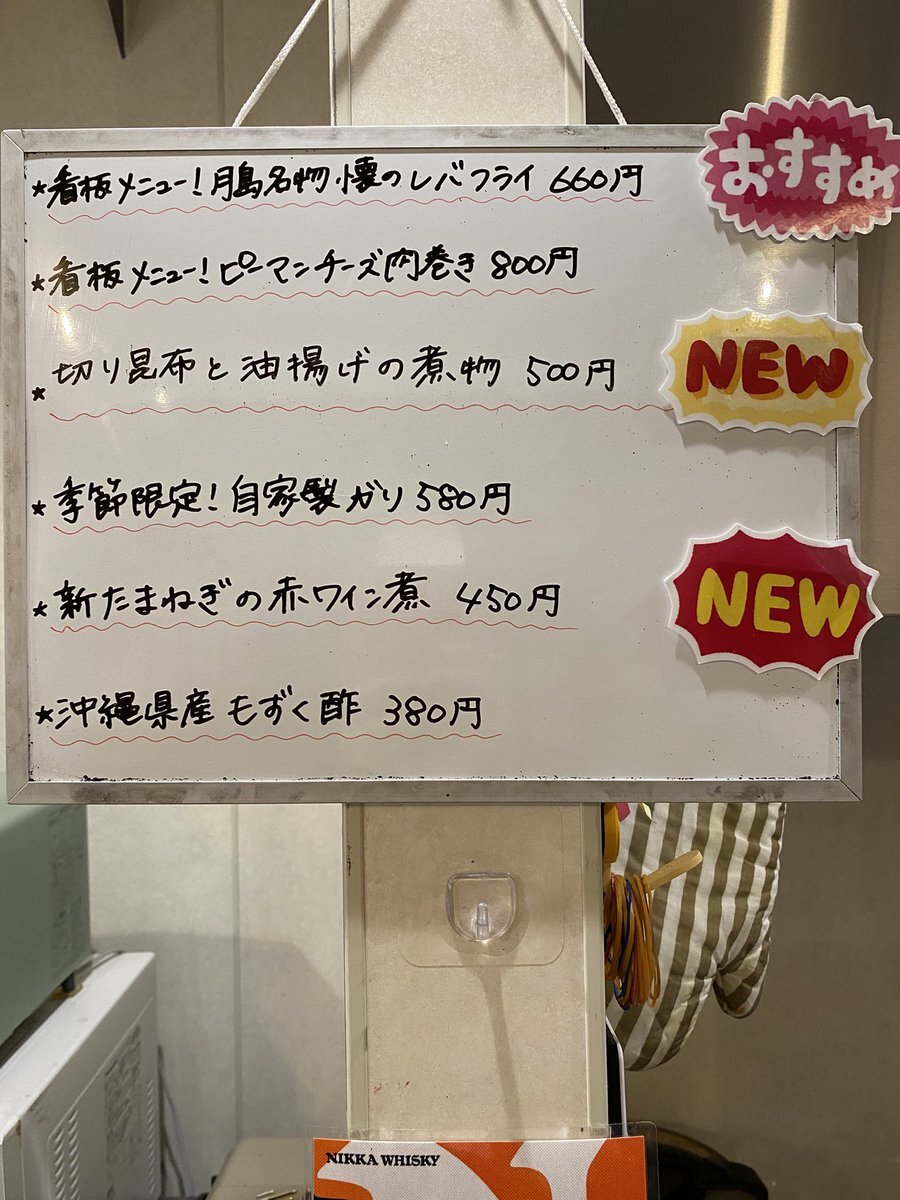 ★看板メニュー!月島名物 懐のレバフライ 660円
おすすめ
★看板メニュー!ピーマンチーズ肉巻き 800円
★切り昆布と油揚げの煮物 500円
NEW
★季節限定!自家製ガリ 580円
★新たまねぎの赤ワイン煮 450円
NEW
★沖縄県産もずく酢 380円
NIKKA WHISKY